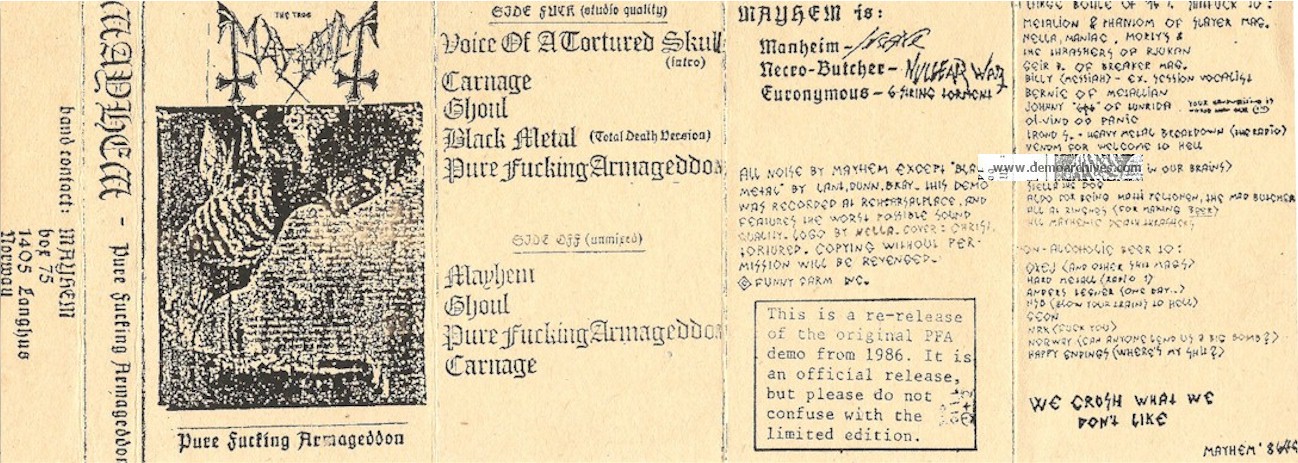 MAYHEM - Pure Fucking Armageddon
band contact: MAYHEM
box 75
1405 Langhus
Norway
THE TRUE
MAYHEM
Pure Fucking Armageddon
SIDE FUCK (studio quality)
Voice Of A Tortured Skull
(intro)
Carnage
Ghoul
Black Metal (Total Death Version)
Pure Fucking Armageddon
SIDE OFF (unmixed)
Mayhem
Ghoul
Pure Fucking Armageddon
Carnage
MAYHEM is:
Manheim -
Necro-Butcher - NUCLEAR WAR
Euronymous - 6-STRING TORMENT
ALL NOISE BY MAYHEM EXCEPT "BLA
METAL" BY LANT, DUNN, BRAY. THIS DEMO
WAS RECORDED AT REHEARSALPLACE, AND
FEATURES THE WORST POSSIBLE SOUND
QUALITY. LOGO BY NELLA. COVER: CHRIST,
TORTURED. COPYING WITHOUT PER-
MISSION WILL BE REVENGED.
FUNNY FARM INC.
This is a re-release
of the original PFA
demo from 1986. It is
an official release,
but please do not
confuse with the
limited edition.
LARGE BOTTLE OF 96 % TO:
METALION & PHANTOM OF SLAYER MAG.
NELLA, MANIAC, MORTY &
THE THRASHERS OF RJUKAN
GEIR B. OF BREAKER MAG.
BILLY (MESSIAH) - EX. SESSION VOCALIST
BERNIE OF METALLIAN
JOHNNY "666" OF TUNRIDA
OI-VIND OD PANIC
TROND S. - HEAVY METAL BREAKDOWN (THE RADIO)
VENOM FOR WELCOME TO HELL
www.demoarchives.com
IN OUR BRAINS)
STELLA THE DOG
ALDO FOR BEING MATTI PELLONEN, THE MAD BUTCHER
ALL AT RINGNES (FOR MAKING BEER)
ALL MAYHEMIC DEATH THRASHERS
NON-ALCOHOLIC BEER TO:
OKEJ (AND OTHER SHIT MAGS)
HARD METALL (RADIO 1)
ANDERS TEGNER (ONE DAY..)
NSB (BLOW YOUR TRAIN) TO HELL)
GEON
NRK (FUCK YOU)
NORWAY (CAN ANYONE LEND US A BIG BOMB?)
HAPPY ENDINGS (WHERE'S MY SHIT?)
WE CRUSH WHAT WE
DON'T LIKE
MAYHEM '86